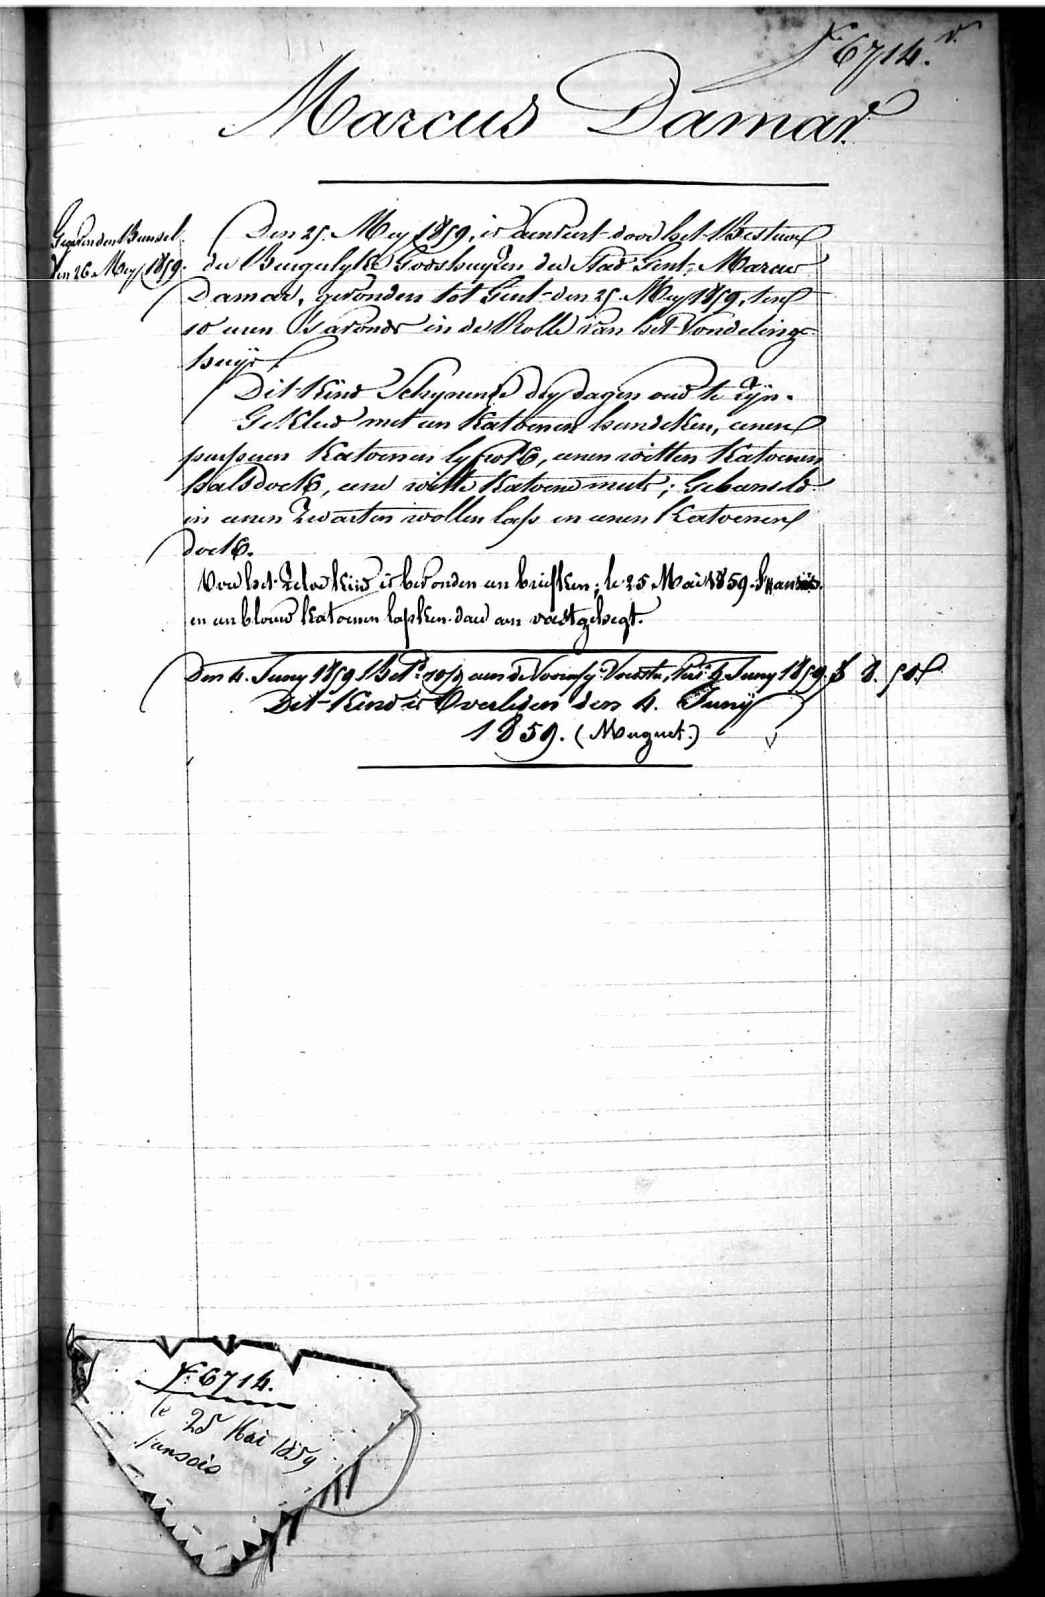 Nr. 6714. v.
Marcus Damar.
Den 26 Mey 1859.
Den 25. Mey 1859, is aenveirt door het Bestuur
der Burgerlyke Godshuyzen der Stad Gent, Marcus
Damar, gevonden tot Gent den 25. Mey 1859, ten
10 uren 's avonds in de Rolle van het Vondeling-
huys.
Dit Kind Schynende dry dagen oud te zyn.
Gekleed met een Katoenen hemdeken, eenen
purperen Katoenen lyfrok, eenen witten Katoenen
halsdoek, eene witte Katoene muts; Gebunseld
in eenen Zwarten wollen lap en eenen Katoenen
doek.
Voor het Zelve Kind is bevonden een briefken; le 25 Mai 1859. fransois.
en een blouw katoenen lapken daer aen vastgehegt.
Den 4. Juny 1859 aen de Voedster, 4 Juny 1859. f 8. 50
Dit Kind is Overleden den 4. Junij
1859. (Muguet.)
Nr. 6714.
le 25 Mai 1859
fansois